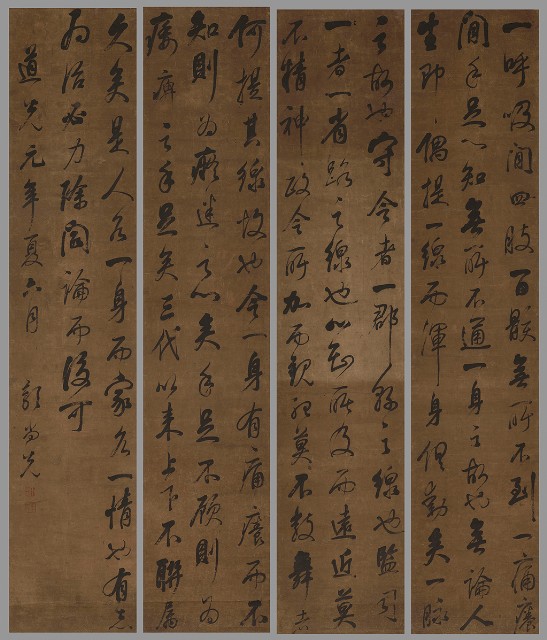 一呼吸間四肢百骸無所不到一痛癢
間手足心知無所不通一身之故也無論人
生即偶提一線而渾身俱動矣一脈
之故也守令者一郡縣之線也監司
者一省路之線也心知所及而遠近莫
不精神政令所加而親莫不鼓舞者
何提其線故也今一身有痛癢而不
知則為癡迷之心矣手足不顧則為
痿痹之手足矣三代以來上下不聯屬
久矣是人各一身而家各一情也有志
為治必力除論而後可
道光元年夏六月 郭尚先